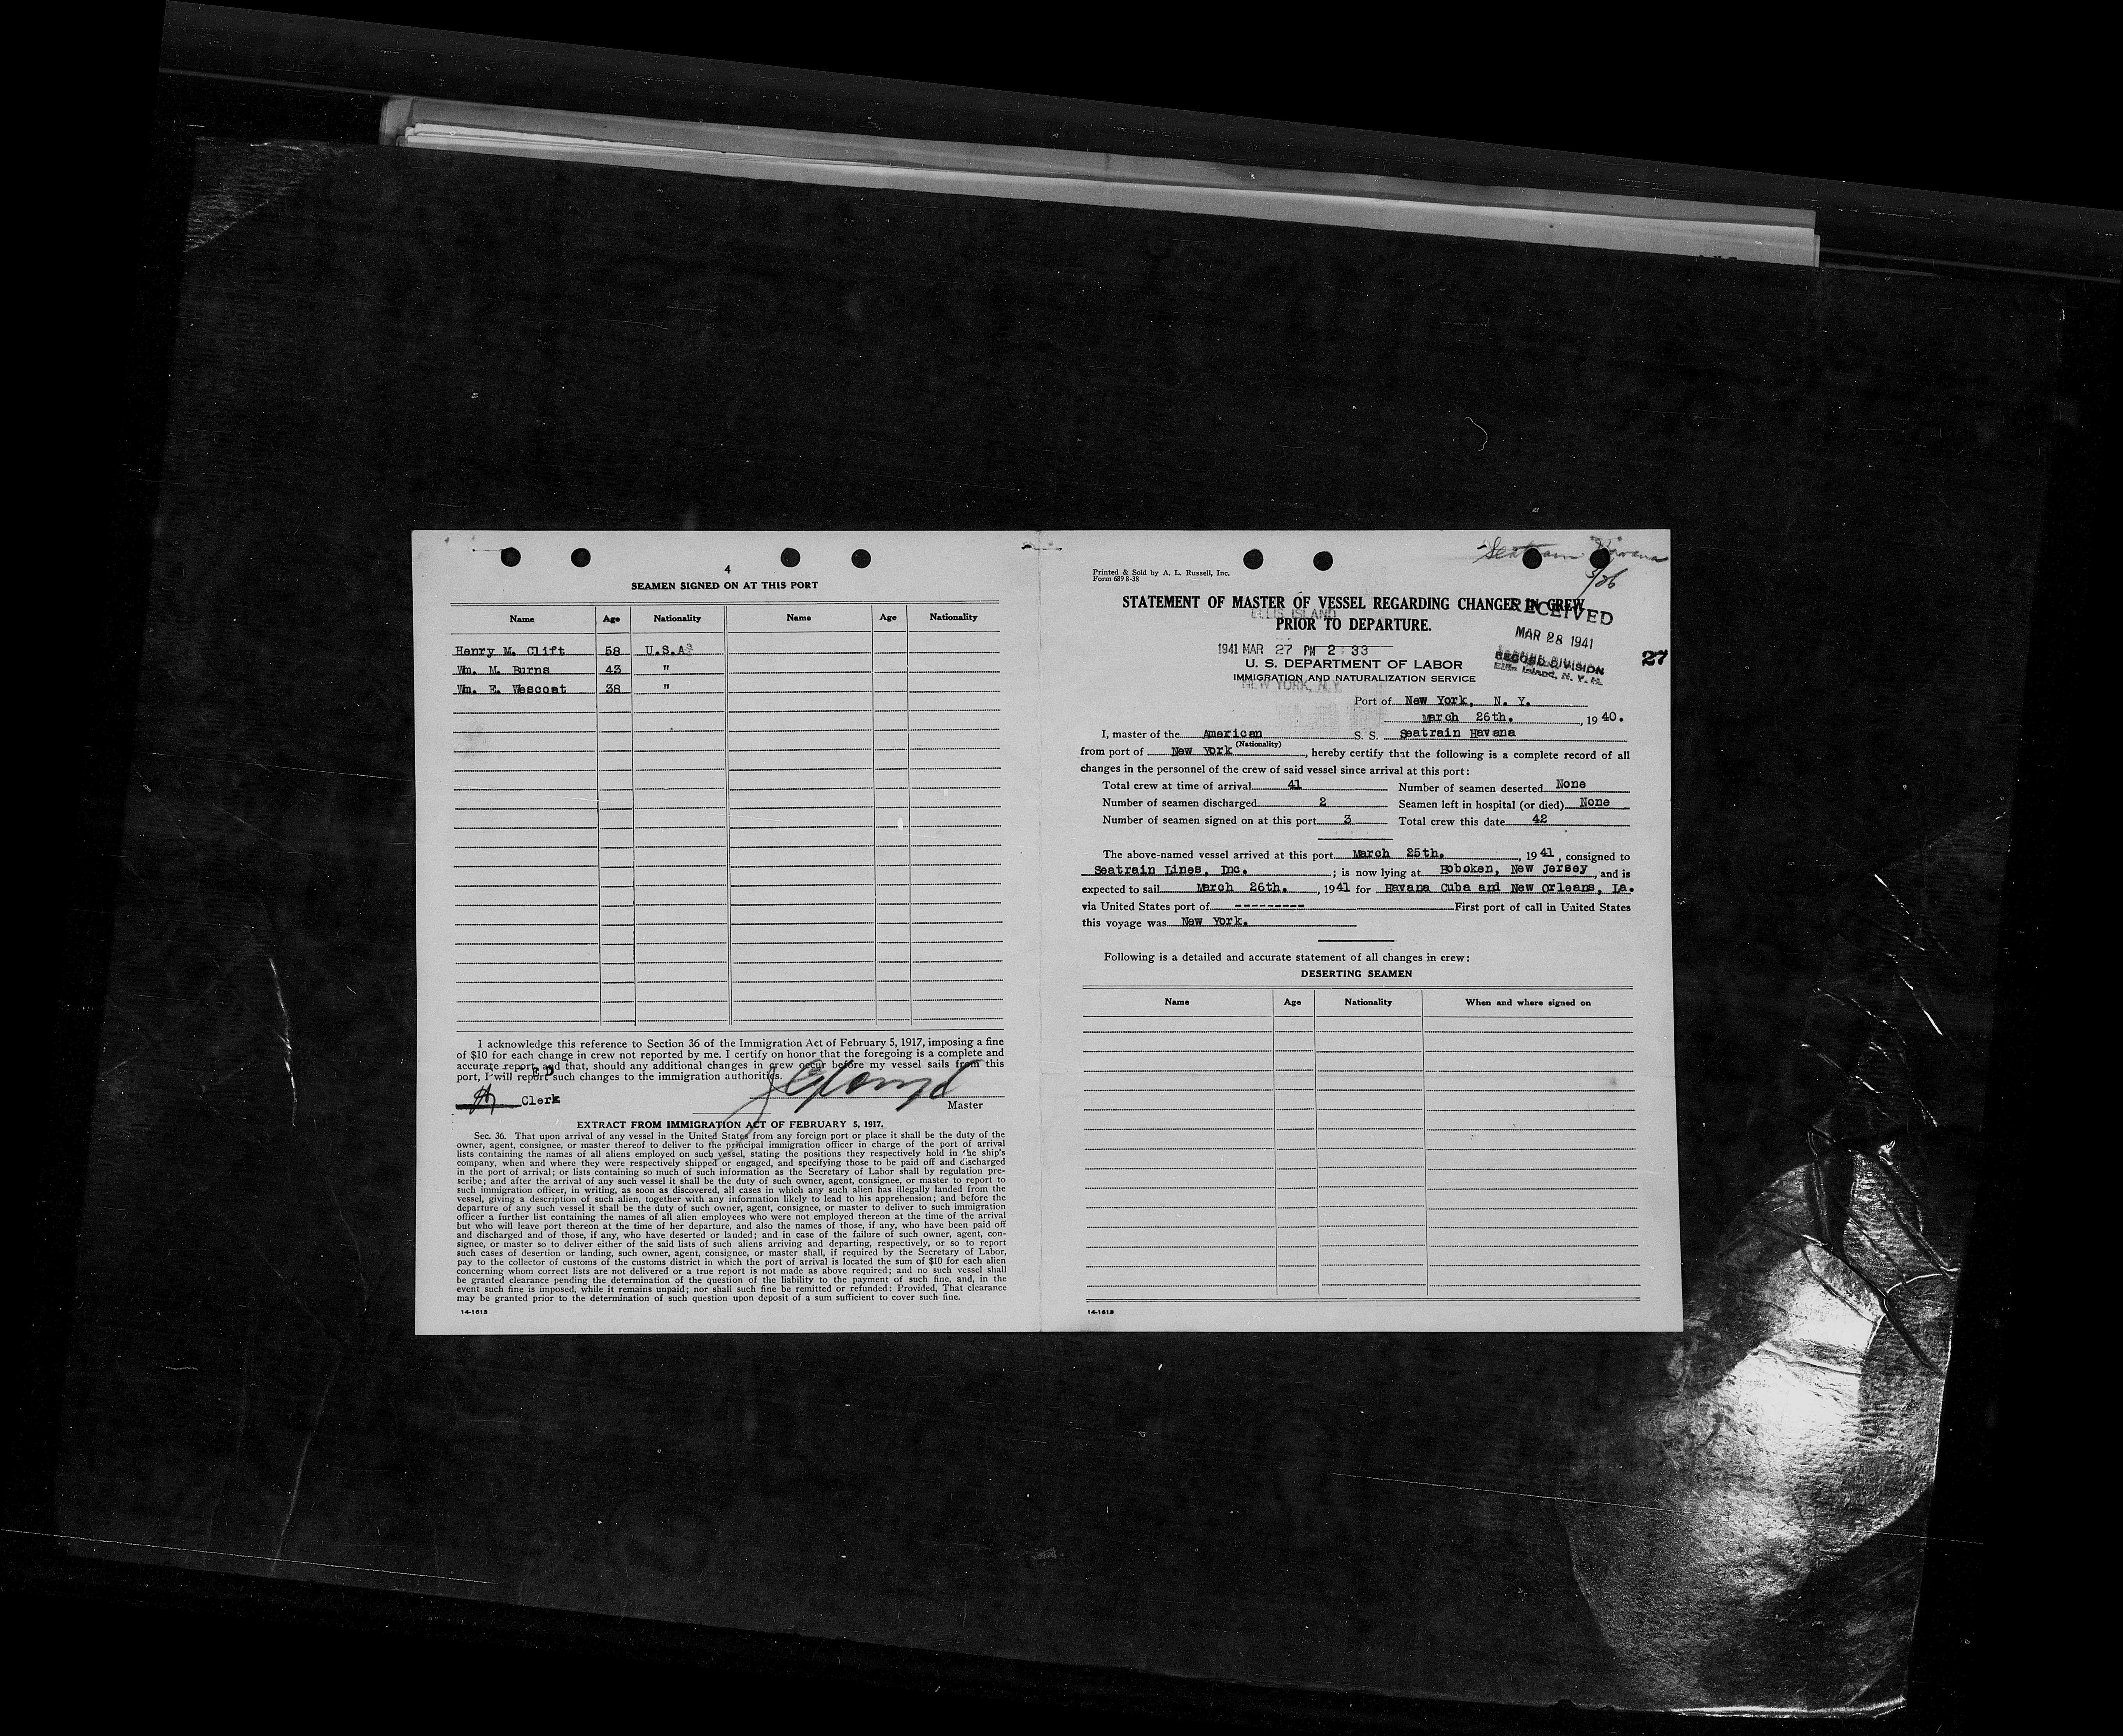 4
SEAMEN SIGNED ON AT THIS PORT
Name Age Nationality Name Age Nationality
Henry M. Clift 58 U.S.A.
Wm. M. Burns 43 "
Wm. E. Wescoat 38 "
I acknowledge this reference to Section 36 of the Immigration Act of February 5, 1917, imposing a fine
of $10 for each change in crew not reported by me. I certify on honor that the foregoing is a complete and
accurate report, and that, should any additional changes in crew occur before my vessel sails from this
port, I will report such changes to the immigration authorities.
Clerk
Master
EXTRACT FROM IMMIGRATION ACT OF FEBRUARY 5, 1917.
Sec. 36. That upon arrival of any vessel in the United States from any foreign port or place it shall be the duty of the
owner, agent, consignee, or master thereof to deliver to the principal immigration officer in charge of the port of arrival
lists containing the names of all aliens employed on such vessel, stating the positions they respectively hold in the ship's
company, when and where they were respectively shipped or engaged, and specifying those to be paid off and discharged
in the port of arrival; or lists containing so much of such information as the Secretary of Labor shall by regulation pre-
scribe; and after the arrival of any such vessel it shall be the duty of such owner, agent, consignee, or master to report to
such immigration officer, in writing, as soon as discovered, all cases in which any such alien has illegally landed from the
vessel, giving a description of such alien, together with any information likely to lead to his apprehension; and before the
departure of any such vessel it shall be the duty of such owner, agent, consignee, or master to deliver to such immigration
officer a further list containing the names of all alien employees who were not employed thereon at the time of the arrival
but who will leave port thereon at the time of her departure, and also the names of those, if any, who have been paid off
and discharged and of those, if any, who have deserted or landed; and in case of the failure of such owner, agent, con-
signee, or master so to deliver either of the said lists of such aliens arriving and departing, respectively, or so to report
such cases of desertion or landing, such owner, agent, consignee, or master shall, if required by the Secretary of Labor,
pay to the collector of customs of the customs district in which the port of arrival is located the sum of $10 for each alien
concerning whom correct lists are not delivered or a true report is not made as above required; and no such vessel shall
be granted clearance pending the determination of the question of the liability to the payment of such fine, and, in the
event such fine is imposed, while it remains unpaid; nor shall such fine be remitted or refunded: Provided, That clearance
may be granted prior to the determination of such question upon deposit of a sum sufficient to cover such fine.
14-1613
Seatrain Havana
3/26
Printed & Sold by A. L. Russell, Inc.
Form 689 8-38
STATEMENT OF MASTER OF VESSEL REGARDING CHANGES IN CREW
PRIOR TO DEPARTURE.
ELLIS ISLAND
RECEIVED
MAR 28 1941
RECORD DIVISION
Ellis Island, N. Y. H.
27
1941 MAR 27 PM 2 33
U. S. DEPARTMENT OF LABOR
IMMIGRATION AND NATURALIZATION SERVICE
NEW YORK, N.Y.
Port of New York, N. Y.
March 26th. , 1940.
I, master of the American S. S. Seatrain Havana
(Nationality)
from port of New York , hereby certify that the following is a complete record of all
changes in the personnel of the crew of said vessel since arrival at this port:
Total crew at time of arrival 41 Number of seamen deserted None
Number of seamen discharged 2 Seamen left in hospital (or died) None
Number of seamen signed on at this port 3 Total crew this date 42
The above-named vessel arrived at this port March 25th. , 1941 , consigned to
Seatrain Lines, Inc. ; is now lying at Hoboken, New Jersey , and is
expected to sail March 26th. , 1941 for Havana Cuba and New Orleans, La.
via United States port of --------- First port of call in United States
this voyage was New York.
Following is a detailed and accurate statement of all changes in crew:
DESERTING SEAMEN
Name Age Nationality When and where signed on
14-1613